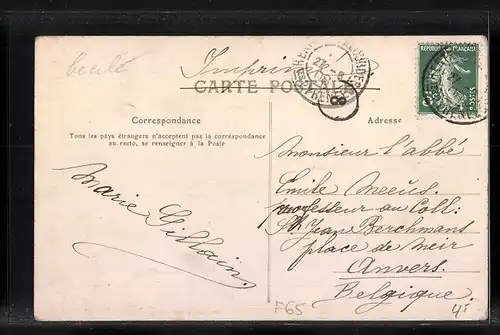 Imprimé
CARTE POSTALE
RÉPUBLIQUE FRANÇAISE
POSTES
Correspondance
Adresse
Tous les pays étrangers n'acceptent pas la correspondance
au recto, se renseigner à la Poste
Marie Gillain.
Monsieur l'abbé
Emile Meeùs.
professeur au Coll:
St Jean Berchmans
place de Meir
Anvers.
Belgique.
F65